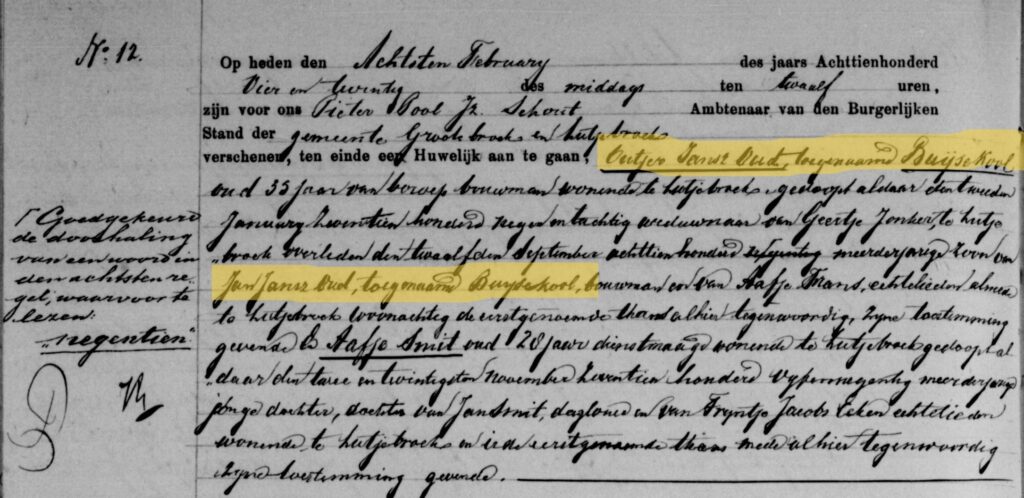 No. 12.
Op heden den Achtsten February des jaars Achttienhonderd
Vier en twintig des middags ten twaalf uren,
zijn voor ons Pieter Pool Jz. Schout Ambtenaar van den Burgerlijken
Stand der gemeente Grootebroek en Lutjebroek
verschenen, ten einde een Huwelijk aan te gaan; Outjer Jansz Oud, toegenaamd Buijsekool
oud 35 jaar van beroep bouwman wonende te Lutjebroek, gedoopt aldaar den tweeden
January Zeventien honderd negen en tachtig weduwnaar van Geertje Jonker, te Lutje
"broek overleden den twaalfden September achttien honderd meerderjarige Zoon van
Jan Jansz Oud, toegenaamd Buijsekool, bouwman en van Aafje Frans, echtelieden almede
te Lutjebroek woonachtig de eerstgenoemde thans alhier tegenwoordig, zyne toestemming
gevende & Aafje Smit oud 28 jaar dienstmaagd wonende te Lutjebroek gedoopt al
"daar den twee en twintigsten November Zeventien honderd vyfennegentig meerderjarige
jonge dochter, dochter van Jan Smit, dagloner en van Tryntje Jacobs echtelieden
wonende te Lutjebroek en is de eerstgenoemde thans mede alhier tegenwoordig
zyne toestemming gevende.
Goedgekeurd
de doorhaling
van een woord in
den achtsten re
gel, waarvoor te
lezen
"negentien"